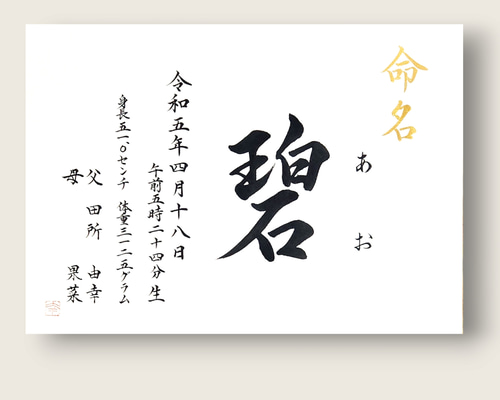 命名
あお
碧
令和五年四月十八日
午前五時二十四分 生
身長五一.〇センチ 体重三一二五グラム
父 田所 由幸
母 果菜